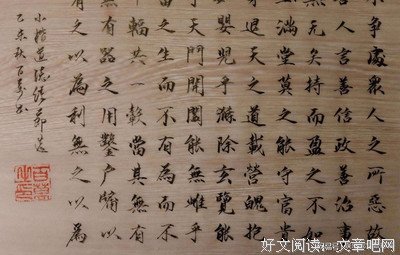 争處衆人之所惡故
善人言善信政善治事
无尤持而盈之不如
滿堂莫之能守富貴
退天之道載營魄抱
嬰兒乎滌除玄覽能
天門開闔能無雌乎
生而不有為而不
輻共一轂當其無有
無有器之用鑿户牖以
有之以為利無之以為
小楷道德經節選
乙未秋百
好文阅读，文章吧网